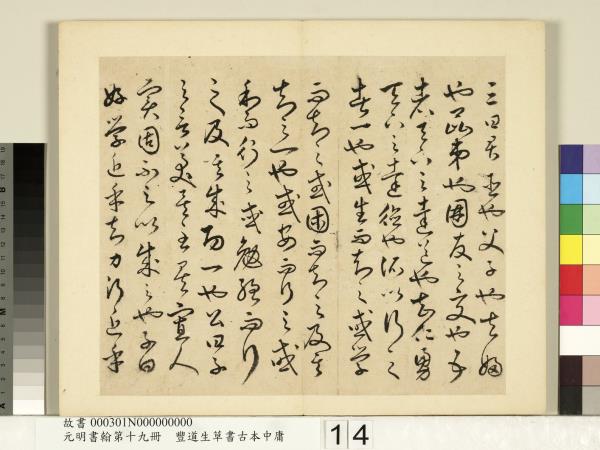 三曰君臣也父子也夫婦
也昆弟也朋友之交也五
者天下之達道也知仁勇
天下之達德也所以行之
者一也或生而知之或學
而知之或困而知之及其
知之一也或安而行之或
利而行之或勉強而行
之及其成功一也公曰子
之言美矣至矣寡人
實固不足以成之也子曰
好學近乎知力行近乎
故書 000301N000000000
元明書翰第十九冊 豐道生草書古本中庸
14